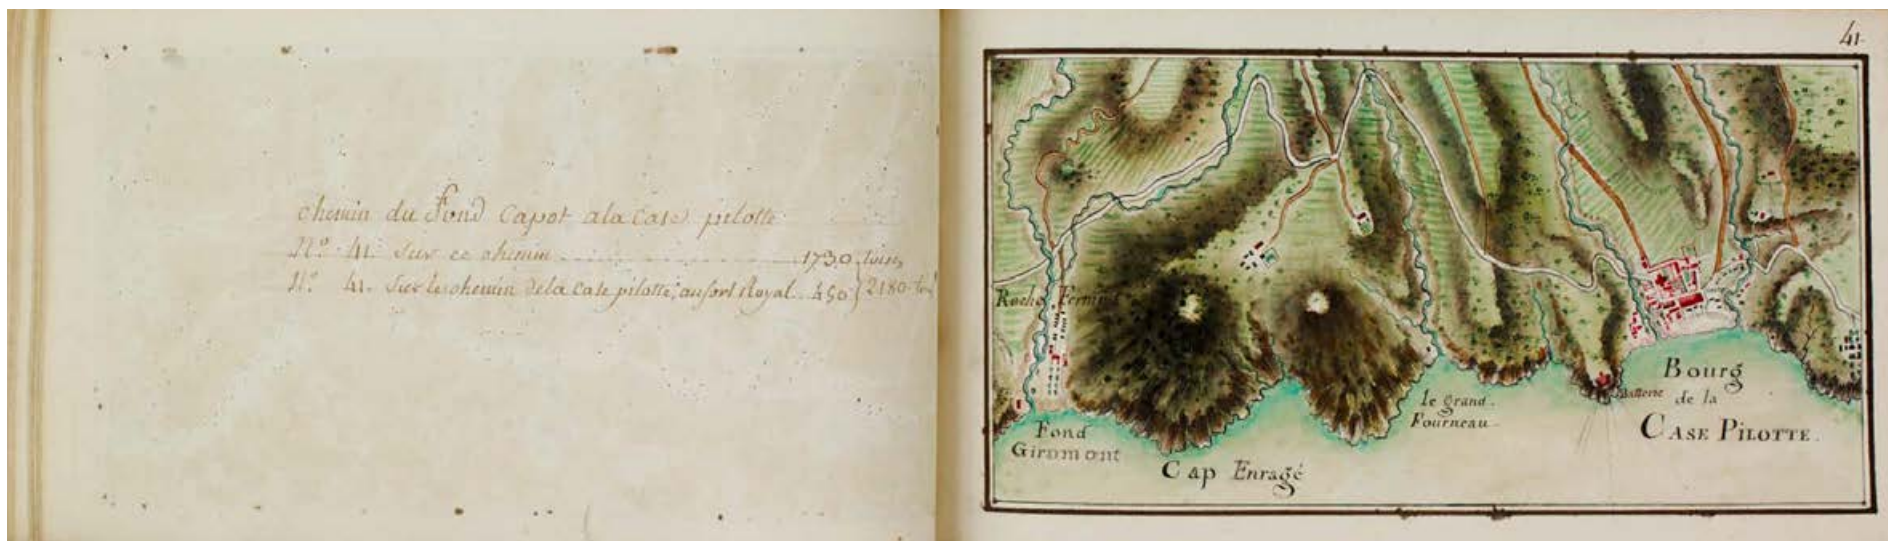 chemin du Fond Capot ala Case pilotte
N.º 41. Sur ce chemin ............ 1730 toises
N.º 41. Sur le chemin dela Case pilotte, au fort Royal .. 450 2180 toi.
41.
Roche
Fond
Giromont
Cap Enragé
le grand
Fourneau
Batterie
Bourg
de la
CASE PILOTTE.